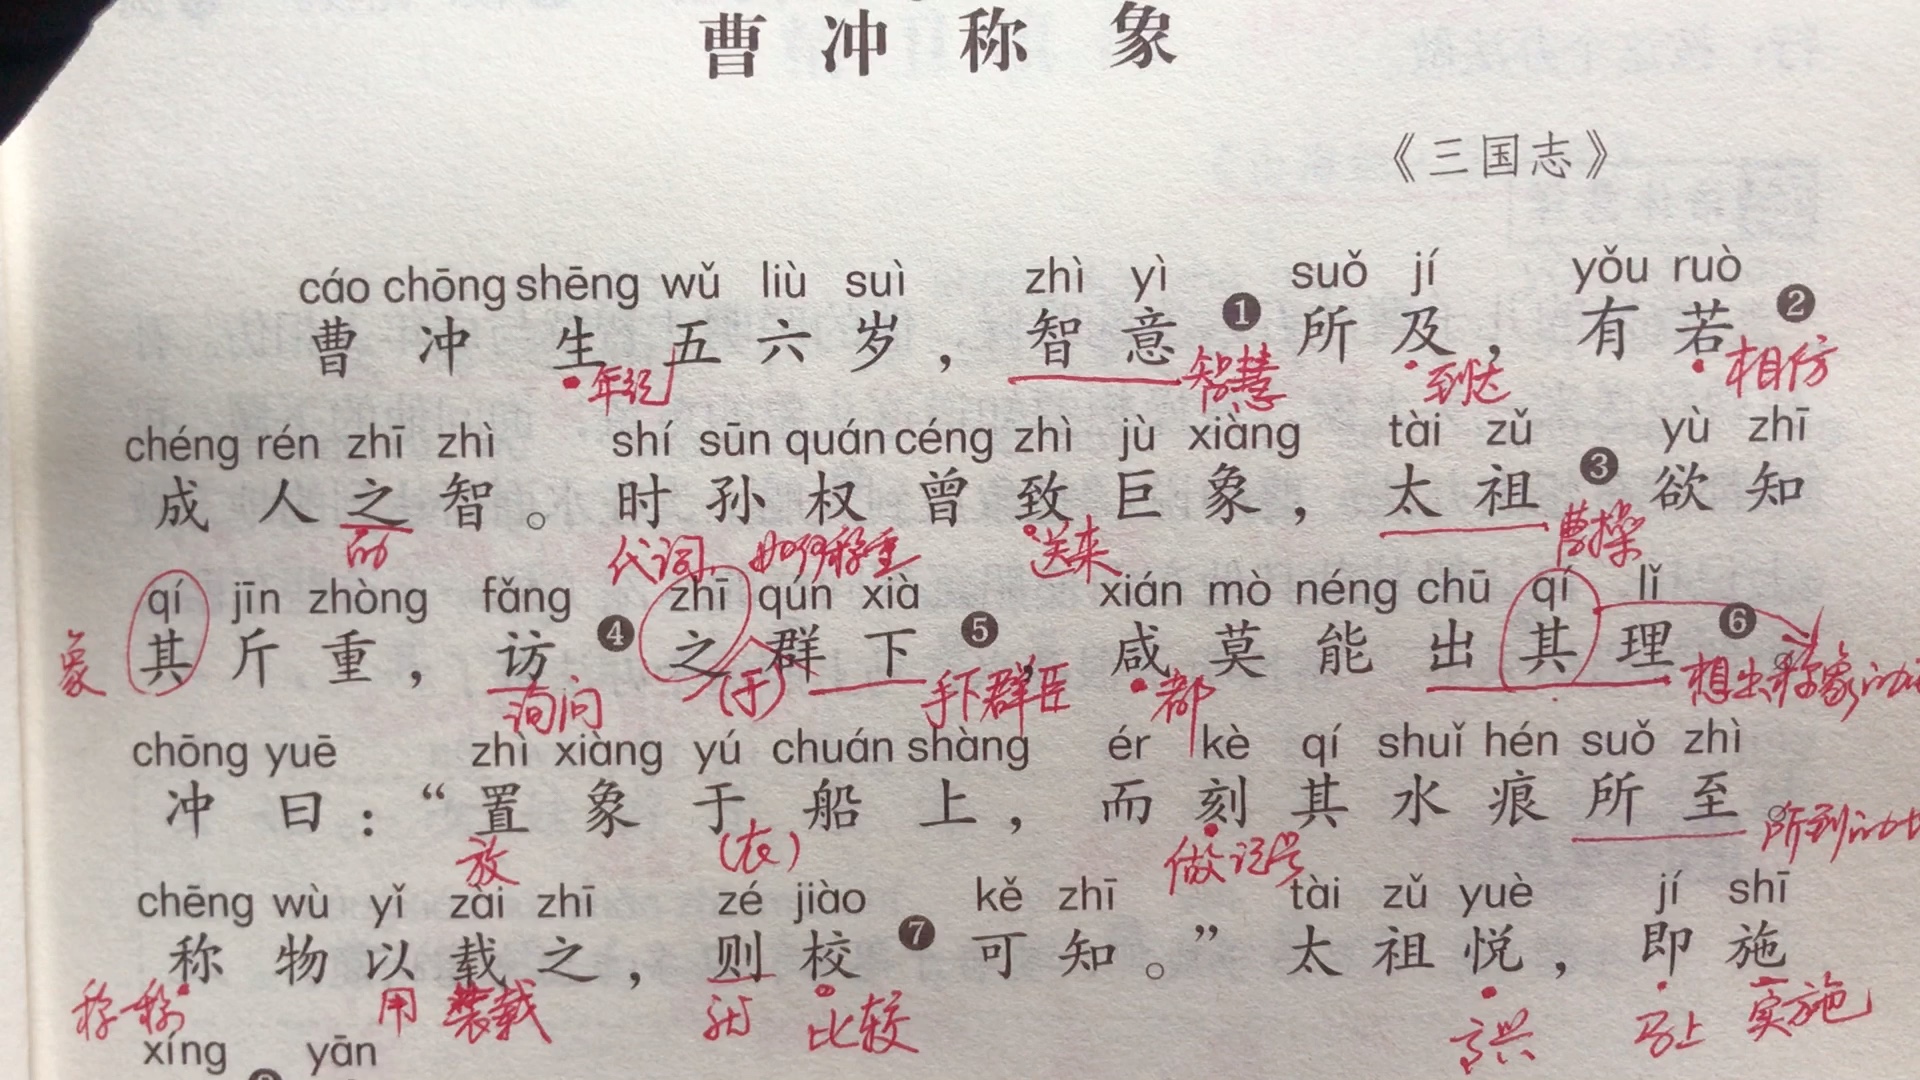 曹冲称象
《三国志》
cáo chōng shēng wǔ liù suì zhì yì suǒ jí yǒu ruò
曹冲生五六岁，智意❶所及，有若❷
年纪 智慧 到达 相仿
chéng rén zhī zhì shí sūn quán céng zhì jù xiàng tài zǔ yù zhī
成人之智。时孙权曾致巨象，太祖❸欲知
的 代词 如何称重 送来 曹操
qí jīn zhòng fǎng zhī qún xià xián mò néng chū qí lǐ
其斤重，访❹之群下❺，咸莫能出其理❻
象 询问 (于) 手下群臣 都 想出称象的
chōng yuē zhì xiàng yú chuán shàng ér kè qí shuǐ hén suǒ zhì
冲曰：“置象于船上，而刻其水痕所至
放 (在) 做记号 所到的
chēng wù yǐ zài zhī zé jiào kě zhī tài zǔ yuè jí shī
称物以载之，则校❼可知。”太祖悦，即施
称一称 用 装载 就 比较 高兴 马上 实施
xíng yān